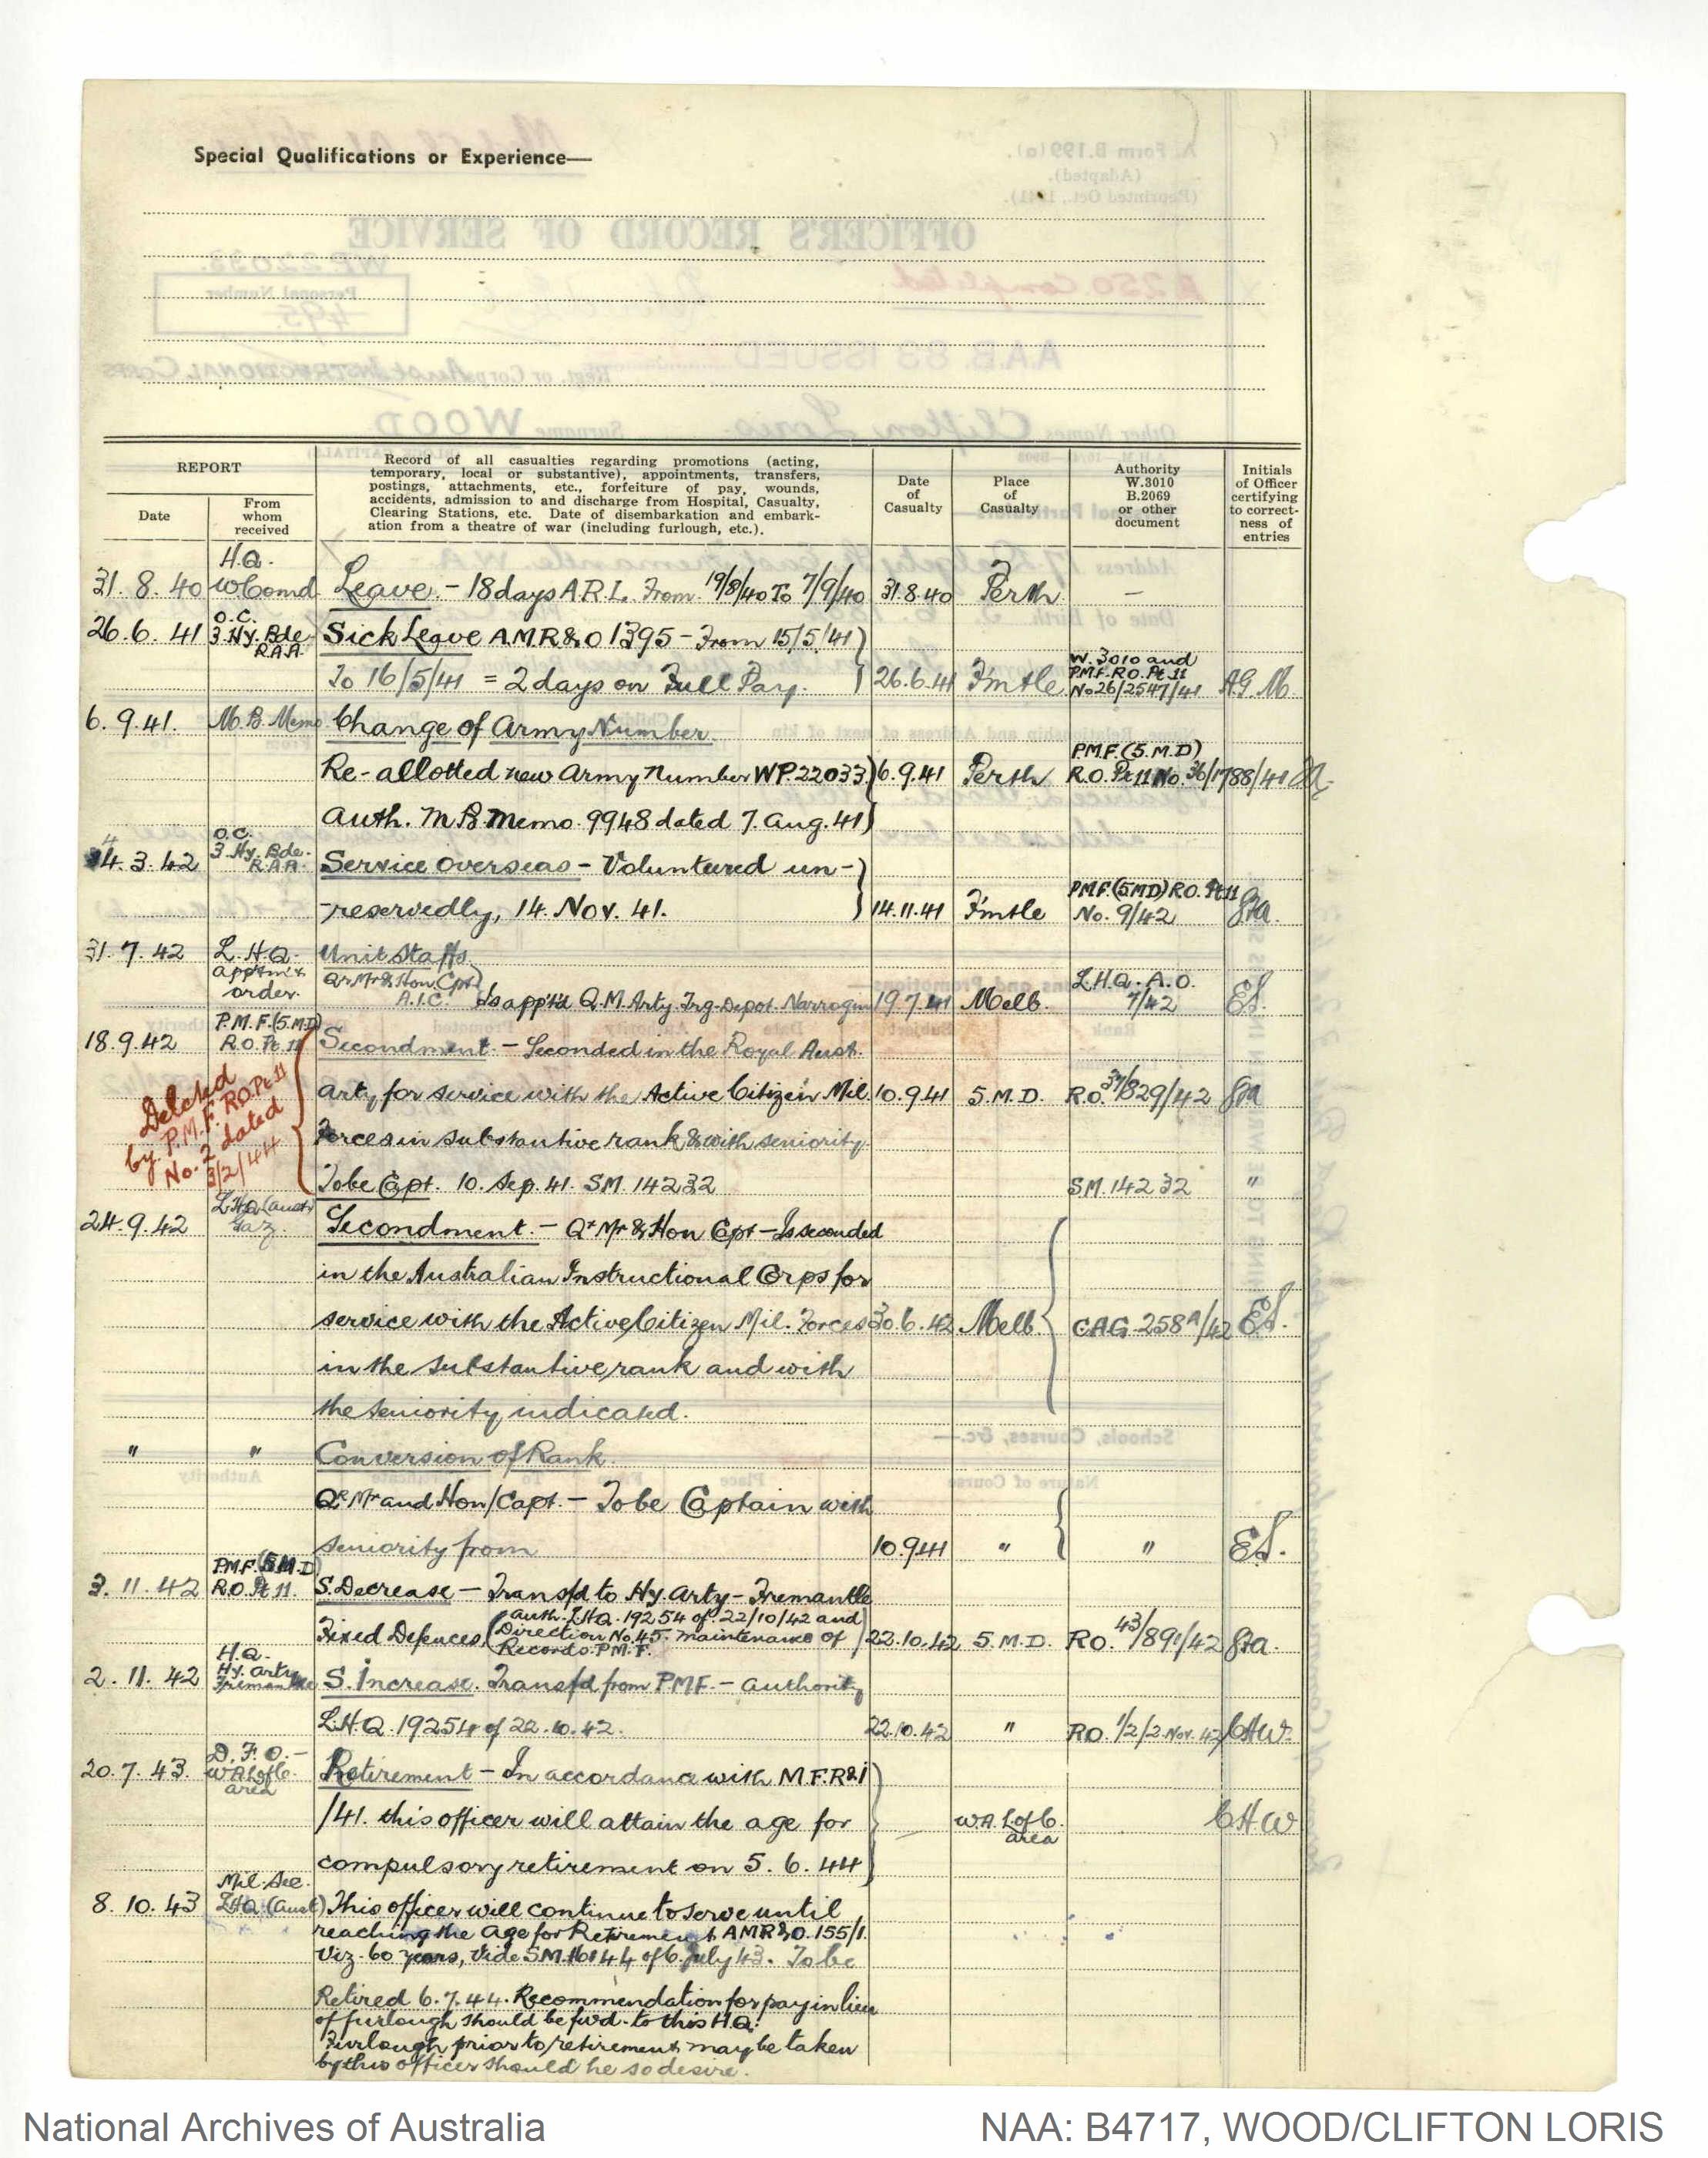 Special Qualifications or Experience—
REPORT
Date
From
whom
received
Record of all casualties regarding promotions (acting,
temporary, local or substantive), appointments, transfers,
postings, attachments, etc., forfeiture of pay, wounds,
accidents, admission to and discharge from Hospital, Casualty,
Clearing Stations, etc. Date of disembarkation and embark-
ation from a theatre of war (including furlough, etc.).
Date
of
Casualty
Place
of
Casualty
Authority
W.3010
B.2069
or other
document
Initials
of Officer
certifying
to correct-
ness of
entries
H.Q.
31. 8. 40 W Comd Leave. - 18 days A.R.L. From 19/8/40 To 7/9/40 31.8.40 Perth —
O.C.
26. 6. 41 3. Hy. Bde. Sick Leave A.M.R.&O 1395 - From 15/5/41
R.A.A.
To 16/5/41 = 2 days on Full Pay. 26.6.41 F'mtle W. 3010 and
P.M.F. R.O. Pt 11
No 26/2547/41 A.G.M.
6. 9. 41. M.B. Memo Change of Army Number.
Re-allotted new Army Number WP.22033 6.9.41 Perth P.M.F. (5.M.D)
R.O. Pt 11 No. 36/1788/41
Auth. M B Memo. 9948 dated 7. Aug. 41
O.C.
4. 3. 42 3. Hy. Bde. Service Overseas - Voluntered un-
R.A.A.
-reservedly, 14. Nov. 41. 14.11.41 F'mtle P.M.F. (5MD) R.O. Pt 11
No. 9/42
31. 7. 42 L.H.Q. Unit Staffs
appt'm't
order.
Qr Mr & Hon. Cpt
A.I.C. Is app't'd Q.M. Arty Trg. Depot. Narrogin 19.7.41 Melb. L.H.Q. A.O.
7/42 E.S.
18. 9. 42 P.M.F. (5.M.D)
R.O. Pt 11 Secondment - Seconded in the Royal Aust.
Arty for service with the Active Citizen Mil. 10.9.41 5.M.D. R.O. 37/829/42
Forces in substantive rank & with seniority.
To be Capt. 10. Sep. 41. SM. 14232 SM. 14232 "
Deleted
by P.M.F. RO. Pt 11
No. 2 dated
3/2/44
24. 9. 42 L.H.Q. (Aust)
Gaz. Secondment. - Qr Mr & Hon Cpt - Is seconded
in the Australian Instructional Corps for
service with the Active Citizen Mil. Forces 30.6.42 Melb. CAG 258A/42 E.S.
in the substantive rank and with
the seniority indicated.
" " Conversion of Rank.
Qr Mr and Hon/Capt. - To be Captain with
seniority from 10.9.41 " " E.S.
P.M.F. (5 M.D)
3. 11. 42 R.O. Pt 11. S. Decrease - Transf'd to Hy. Arty - Fremantle
Fixed Defences (Auth. L.H.Q. 19254 of 22/10/42 and
Direction No. 45. maintenance of
Records P.M.F.) 22.10.42 5.M.D. RO. 43/891/42
H.Q.
2. 11. 42 Hy. Arty
Fremantle S. Increase. Transf'd from PMF. - Authority
L.H.Q. 19254 of 22.10.42. 22.10.42 " RO. 1/2/2 Nov. 42 CHW.
20. 7. 43. D.F.O. -
W.A. L of C.
area Retirement - In accordance with M.F.R&I
/41. this officer will attain the age for W.A. L of C.
area CHW
compulsory retirement on 5. 6. 44
8. 10. 43 Mil. Sec.
LHQ. (Aust) This officer will continue to serve until
reaching the Age for Retirement AMR&O. 155/1.
Viz. 60 years, vide SM. 16144 of 6 July 43. To be
Retired 6. 7. 44. Recommendation for pay in lieu
of furlough should be fwd. to this H.Q.
Furlough prior to retirement may be taken
by this officer should he so desire.
National Archives of Australia
NAA: B4717, WOOD/CLIFTON LORIS